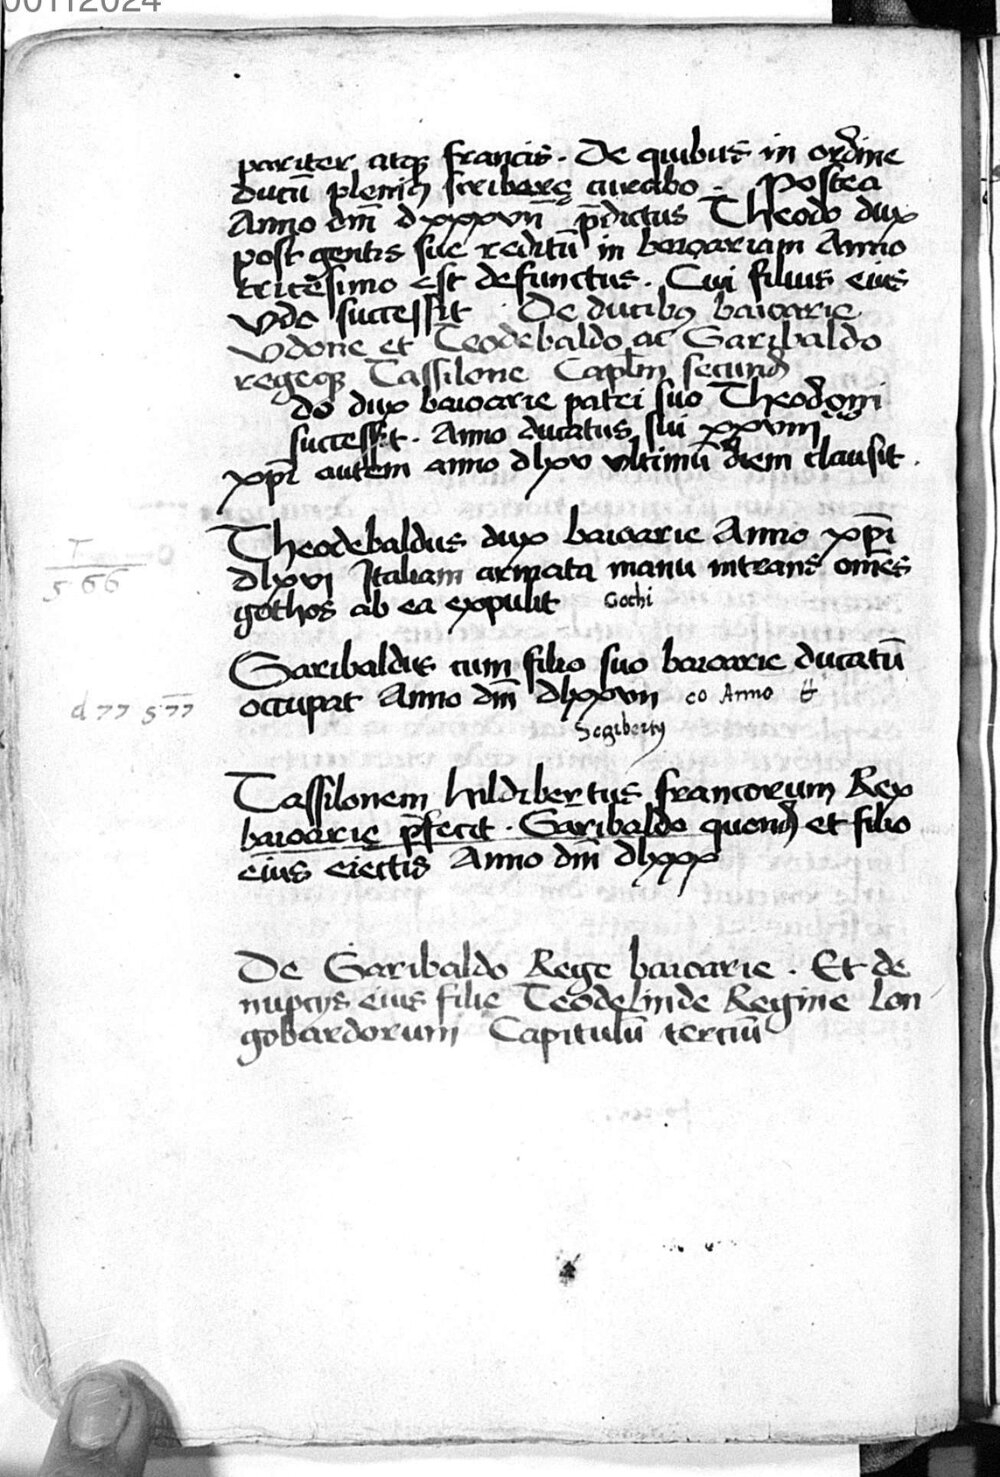 00112024
pariter atq̃ francis. De quibus in ordine
ducũ pleniꝰ scribere curabo. Postea
Anno dm̃ dxxxvii p̃dictus Theodo dux
post gentis sue reditũ in baioariam Anno
tricesimo est defunctus. Cui filius eius
Vdo successit. De ducibꝰ baioarie
Vdone et Teodebaldo ac Garibaldo
regeqꝫ Tassilone Caplm̃ secund
do dux baioarie patri suo Theodoni
successit. Anno ducatus sui xxviii
xp̃i autem anno dlxv vltimũ diem clausit.
Theodebaldus dux baioarie Anno xp̃i
dlxvi Italiam armata manu intrans om̃es
gothos ab ea expulit Gothi
566
Garibaldus cum filio suo baioarie ducatũ
occupat Anno dm̃ dlxxvii eo Anno
d77 577
Segibertꝰ
Tassilonem hildibertus francorum Rex
baioarie p̃fecit. Garibaldo quond̃ et filio
eius eiectis Anno dm̃ dlxxx
De Garibaldo Rege baioarie. Et de
nuptijs eius filie Teodelinde Regine lon
gobardorum Capitulũ terciũ